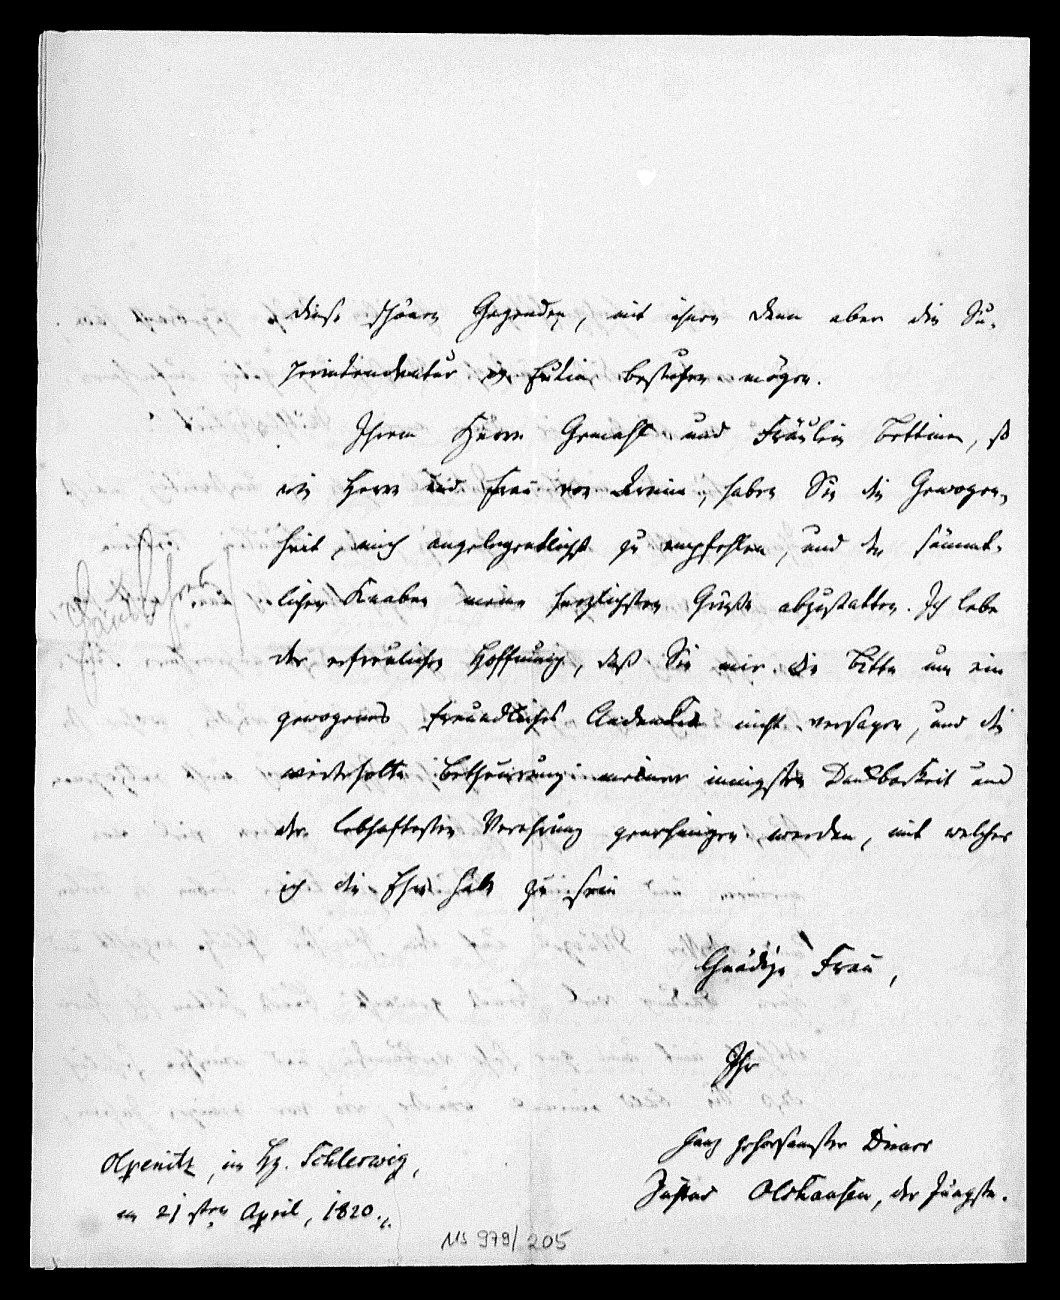 diese schönen Gegenden, mit ihnen denn aber die Su-
perintendentur in Eutin besuchen mögen.
Ihrem Herrn Gemahl und Fräulein Bettinen, so
wie Herrn und Frau von haben Sie die Gewogen-
heit, mich angelegentlichst zu empfehlen, und den sämmt-
lichen Knaben meine herzlichsten Grüße abzustatten. Ich lebe
der erfreulichen Hoffnung, daß Sie mir die Bitte um ein
gewogenes freundliches Andenken nicht versagen, und die
wiederholte Betheurung meiner innigsten Dankbarkeit und
der lebhaftesten Verehrung genehmigen werden, mit welcher
ich die Ehre habe zu sein
Gnädige Frau,
Ihr
ganz gehorsamster Diener
Justus Olshausen, der Jüngste.
Olpenitz, im Hz. Schleswig,
am 21sten April, 1820.
MS 979/205